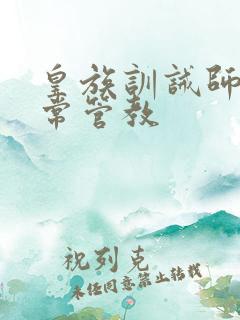 皇族訓誡師
常管教
祝列克
未经同意禁止转载